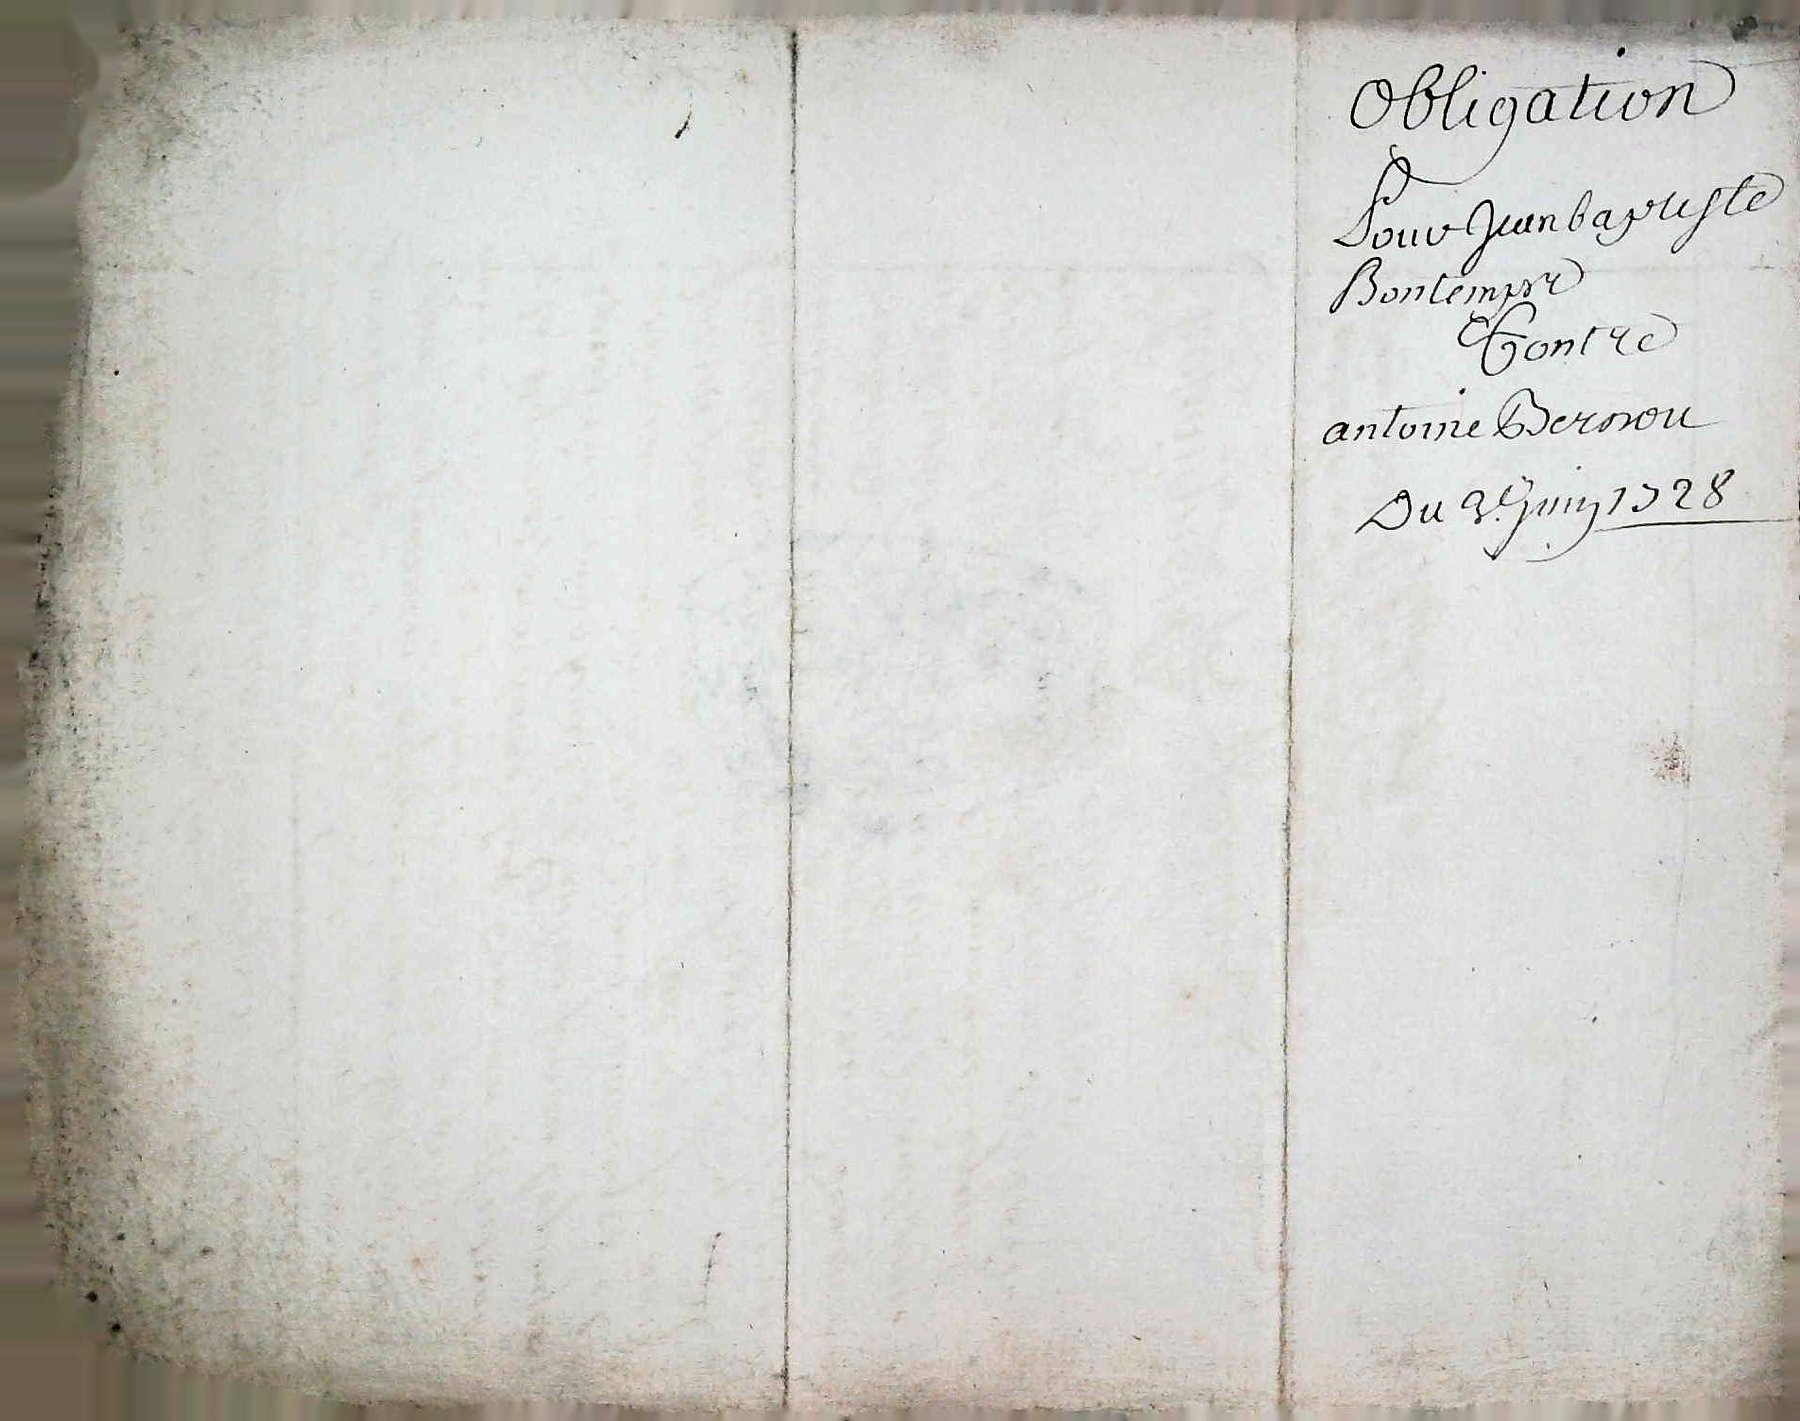 Obligation
Pour Jean baptiste
Bontemps
Contre
antoine
Du 3e Juin 1728